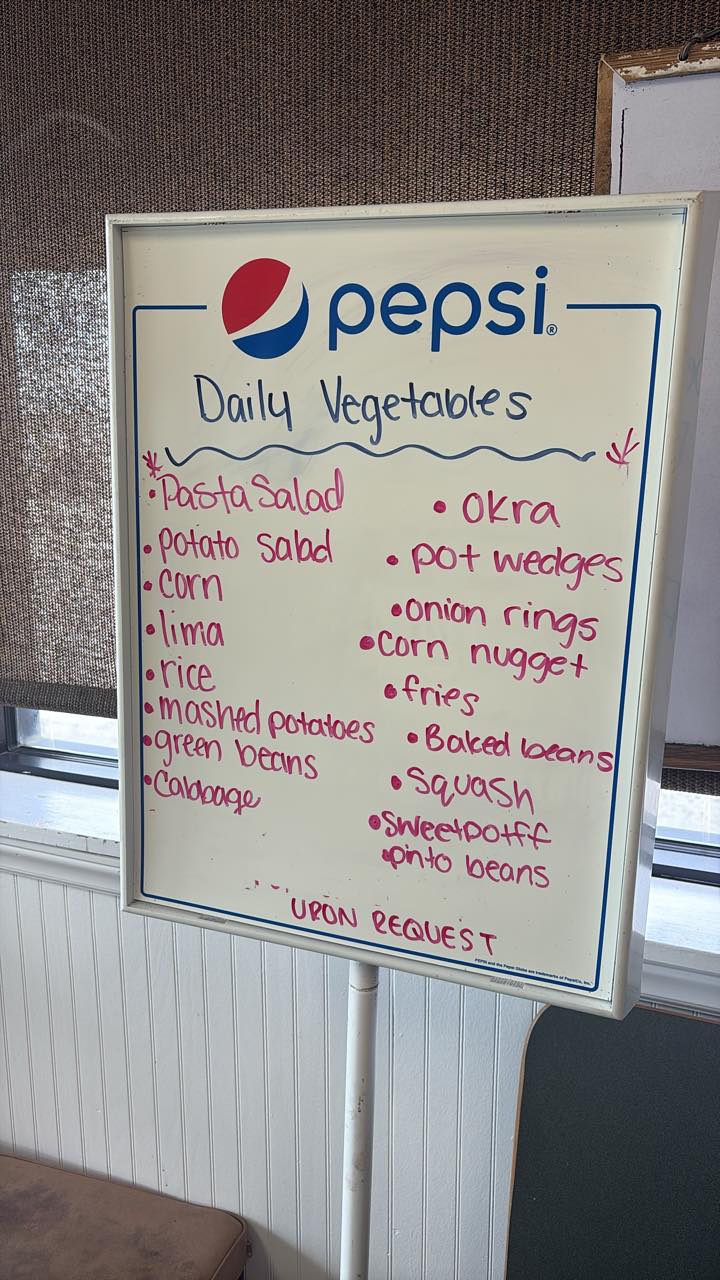 pepsi®
Daily Vegetables
• Pasta Salad
• potato salad
• corn
• lima
• rice
• mashed potatoes
• green beans
• Cabbage
• Okra
• pot wedges
• onion rings
• Corn nugget
• fries
• Baked beans
• Squash
• Sweetpotff
• pinto beans
UPON REQUEST
PEPSI and the Pepsi Globe are trademarks of PepsiCo, Inc.